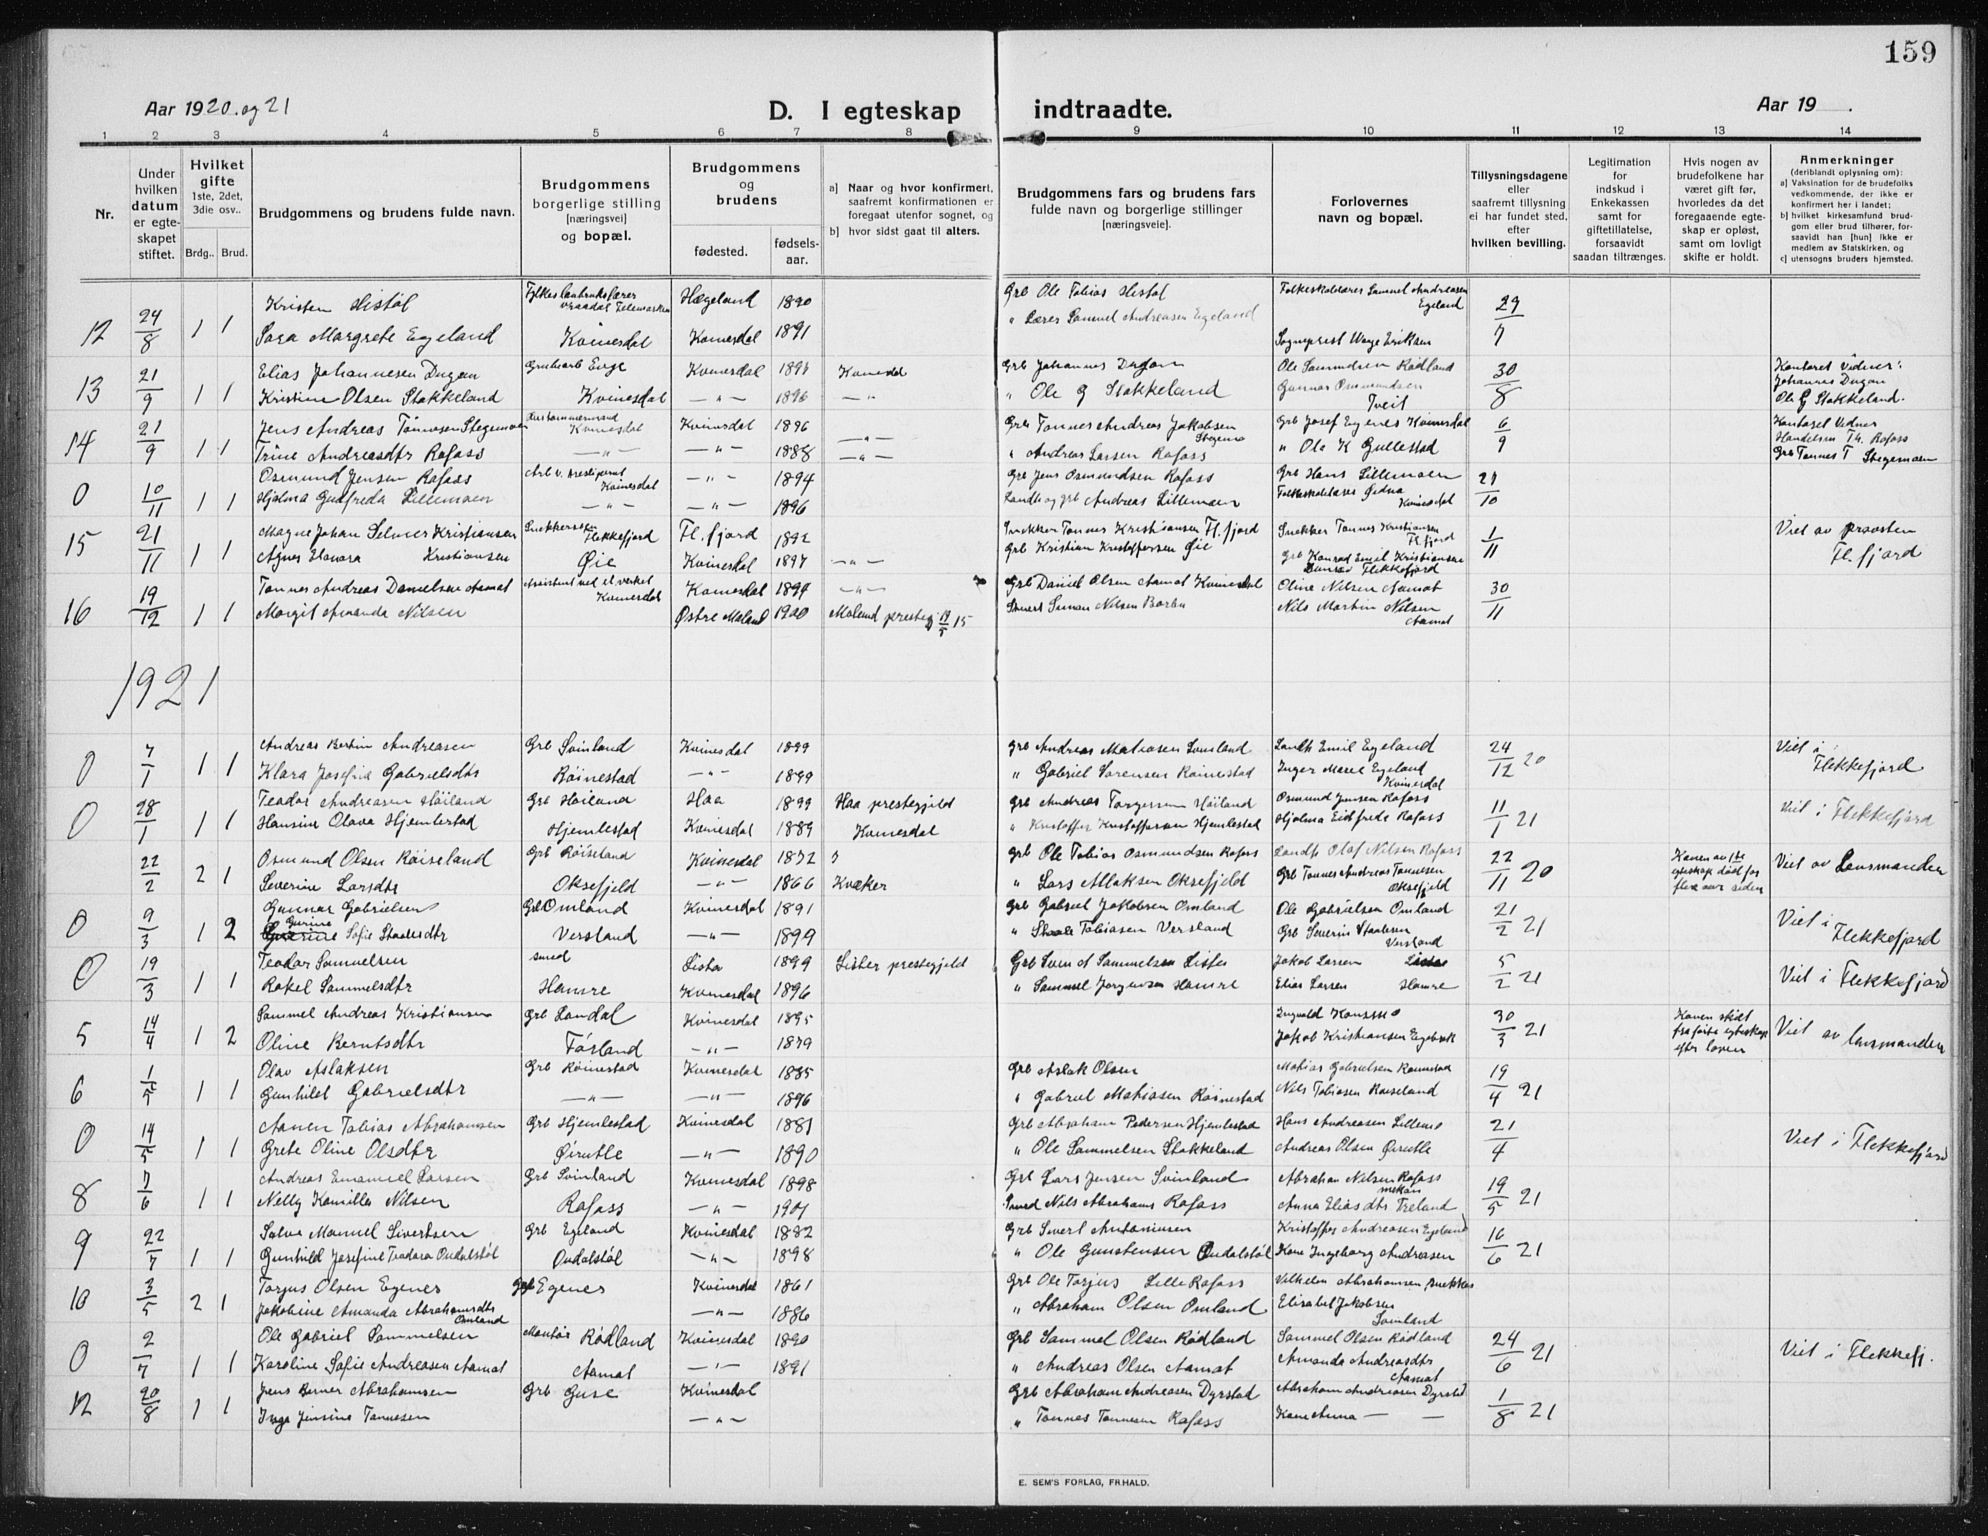 159
Aar 1920. og 21
D. I egteskap indtraadte.
Aar 19 .
1 2 3 4 5 6 7 8 9 10 11 12 13 14
Nr.
Under hvilken datum er egteskapet stiftet.
Hvilket gifte 1ste, 2det, 3die osv..
Brdg.. Brud.
Brudgommens og brudens fulde navn.
Brudgommens borgerlige stilling [næringsvei] og bopæl.
Brudgommens og brudens
fødested. fødsels-aar.
a] Naar og hvor konfirmert, saafremt konfirmationen er foregaat utenfor sognet, og
b] hvor sidst gaat til alters.
Brudgommens fars og brudens fars fulde navn og borgerlige stillinger [næringsveie].
Forlovernes navn og bopæl.
Tillysningsdagene eller saafremt tillysning ei har fundet sted, efter hvilken bevilling.
Legitimation for indskud i Enkekassen samt for giftetillatelse, forsaavidt saadan tiltrænges.
Hvis nogen av brudefolkene har været gift før, hvorledes da det foregaaende egteskap er opløst, samt om lovligt skifte er holdt.
Anmerkninger (deriblandt oplysning om):
a] Vaksination for de brudefolks vedkommende, der ikke er konfirmert her i landet;
b] hvilket kirkesamfund brudgom eller brud tilhører, forsaavidt han [hun] ikke er medlem av Statskirken, og
c] utensogns bruders hjemsted.
12 24/8 1 1 Kristen Histøl Hægeland 1890 Grb Ole Tobias Histøl Folkeskolelærer Sammel Andreasen Egeland 29/7
Sara Margrete Egeland Kvinesdal Kvinesdal 1891 " Lærer Sammel Andreasen Egeland Sogneprest Eriksen
13 21/9 1 1 Elias Johannesen Dugan Kvinesdal Grb Johannes Dugan Ole Sammelsen Rødland 30/8 Kontoret Vidner: Johannes Dugan
Kristine Olsen Stakkeland Kvinesdal —"— 1896 " Ole G Stakkeland Gunnar Osmundsen Tveit Ole G Stakkeland.
14 21/9 1 1 Jens Andreas Tønnesen Stegemoen Kvinesdal Kvinesdal 1896 —"— Grb Tønnes Andreas Jakobsen Grb Josef Egenes Kvinesdal 6/9
Trine Andreasdtr Rafoss —"— —"— 1888 —"— " Andreas Larsen Rafoss " Ole K Gullestad Grb Tønnes T Stegemoen
0 10/11 1 1 Osmund Jensen Rafoss Kvinesdal —"— 1894 Grb Jens Osmundsen Rafoss Grb Hans Lillemoen 21/10
Hjalma Gudfreda Lillemoen —"— —"— 1896 Andreas Lillemoen Kvinesdal
15 21/11 1 1 Magne Johan Selmer Kristiansen Flekkefjord Fl. fjord 1892 Snekker Tønnes Kristiansen Fl. fjord Snekker Tønnes Kristiansen Fl. fjord 1/11 Viet av provsten Fl. fjord
Agnes Hanora Kristiansen Øie Kvinesdal 1897 —"— Grb Kristian Kristoffersen Øie Grb Konrad Emil Kristiansen Flekkefjord
16 19/12 1 1 Tønnes Andreas Danielsen Aamot Kvinesdal Kvinesdal 1894 —"— Grb Daniel Olsen Aamot Kvinesdal Oline Nilsen Aamot 30/11
Margit Amanda Nilsen 1900 19/5 15 Simon Nilsen Nils Martin Nilsen Aamot
1921
0 7/1 1 1 Andreas Bertin Andreasen Grb Svinland Kvinesdal 1899 Grb Andreas Matiasen Svinland Landh Emil Egeland 24/12 20 Viet i Flekkefjord
Klara Josefine Gabrielsdtr Røinestad —"— 1899 " Gabriel Sørensen Røinestad Inger Marie Egeland Kvinesdal
0 28/1 1 1 Teodor Andreasen Høiland Grb Høiland Haa 1899 Haa prestegjeld Grb Andreas Torgersen Høiland Osmund Jensen Rafoss 11/1 21 Viet i Flekkefjord
Hansine Olava Hjemlestad Hjemlestad Kvinesdal 1889 Kvinesdal " Kristoffer Kristoffersen Hjemlestad Hjalma Rafoss
22/2 2 1 Osmund Olsen Røiseland Grb Røiseland Kvinesdal 1872 Grb Ole Tobias Osmundsen Rafoss Olaf Nilsen Rafoss 22/11 20 Konen av 1ste egteskap død for flere aar siden Viet av Lensmanden
Severine Larsdtr Oksefjeld —"— 1866 Kvæker " Lars Aslaksen Oksefjeld Grb Tønnes Andreas Tønnesen Oksefjeld
0 9/3 1 2 Gunnar Gabrielsen Grb Omland Kvinesdal 1891 Grb Gabriel Jakobsen Omland Ole Gabrielsen Omland 21/2 21 Viet i Flekkefjord
Gurine Sofie Staalesdtr Versland —"— 1899 " Staale Tobiasen Versland Grb Severin Staalesen Versland
0 19/3 1 1 Teodor Samuelsen smed Lista 1899 Lister prestegjeld Grb Sammelsen Lister Jakob Larsen Lista 5/2 21 Viet i Flekkefjord
Rakel Sammelsdtr Hamre Kvinesdal 1896 " Sammel Jørgensen Hamre Elias Larsen Hamre
5 14/4 1 2 Sammel Andreas Kristiansen Grb Landal Kvinesdal 1895 Ingvald 30/3 21 Konen skilt fra første egteskap efter loven Viet av lensmanden
Oline Berntsdtr —"— 1879 Jakob Kristiansen Egebæk
6 1/5 1 1 Olav Aslaksen Grb Røinestad Kvinesdal 1885 Grb Aslak Olsen Matias Gabrielsen Røinestad 19/4 21
Gunhild Gabrielsdtr —"— —"— 1896 " Gabriel Matiasen Røinestad Nils Tobiasen Røiseland
0 14/5 1 1 Aanen Tobias Abrahamsen Grb Hjemlestad Kvinesdal 1881 Grb Abraham Pedersen Hjemlestad Hans Andreasen 21/4 Viet i Flekkefjord
Grete Oline Olsdtr —"— 1890 " Ole Sammelsen Stakkeland Andreas Olsen
8 7/6 1 1 Andreas Emanuel Larsen Grb Svinland Kvinesdal 1898 Grb Lars Jensen Svinland Abraham Nilsen Rafoss 19/5 21
Nelly Kamilla Nilsen Rafoss —"— 1901 Smed Nils Abrahams Rafoss Anna Eliasdtr Treland
9 22/7 1 1 Salve Manuel Sivertsen Grb Egeland Kvinesdal 1882 Grb Sivert Antonius en Kristoffer Andreasen Egeland 16/6 21
Gunhild Josefine Teodora Oudalstøl Oudalstøl —"— 1898 " Ole Gunstensen Oudalstøl Kone Ingeborg Andreasen
10 3/5 2 1 Torjus Olsen Egenes Grb Egenes Kvinesdal 1861 Grb Ole Torjus Lille Rafoss Vilhelm Abrahamsen snekker
Jakobine Amanda Abrahamsdtr Omland —"— 1886 " Abraham Olsen Omland Elisabet Jakobsen Svinland
0 2/7 1 1 Ole Gabriel Sammelsen Rødland Kvinesdal 1890 Grb Sammel Olsen Rødland Sammel Olsen Rødland 24/6 21 Viet i Flekkefj.
Karoline Sofie Andreasen Aamot Aamot —"— 1891 " Andreas Olsen Aamot Amanda Andreasdtr Aamot
12 20/8 1 1 Jens Berner Abrahamsen Grb Guse Kvinesdal Grb Abraham Andreasen Dyrstad Abraham Andreasen Dyrstad 1/8 21
Inga Jensine Tønnesen —"— " Tønnes Tønnesen Rafoss Kone Anna — —
E. SEM'S FORLAG, FR.HALD.